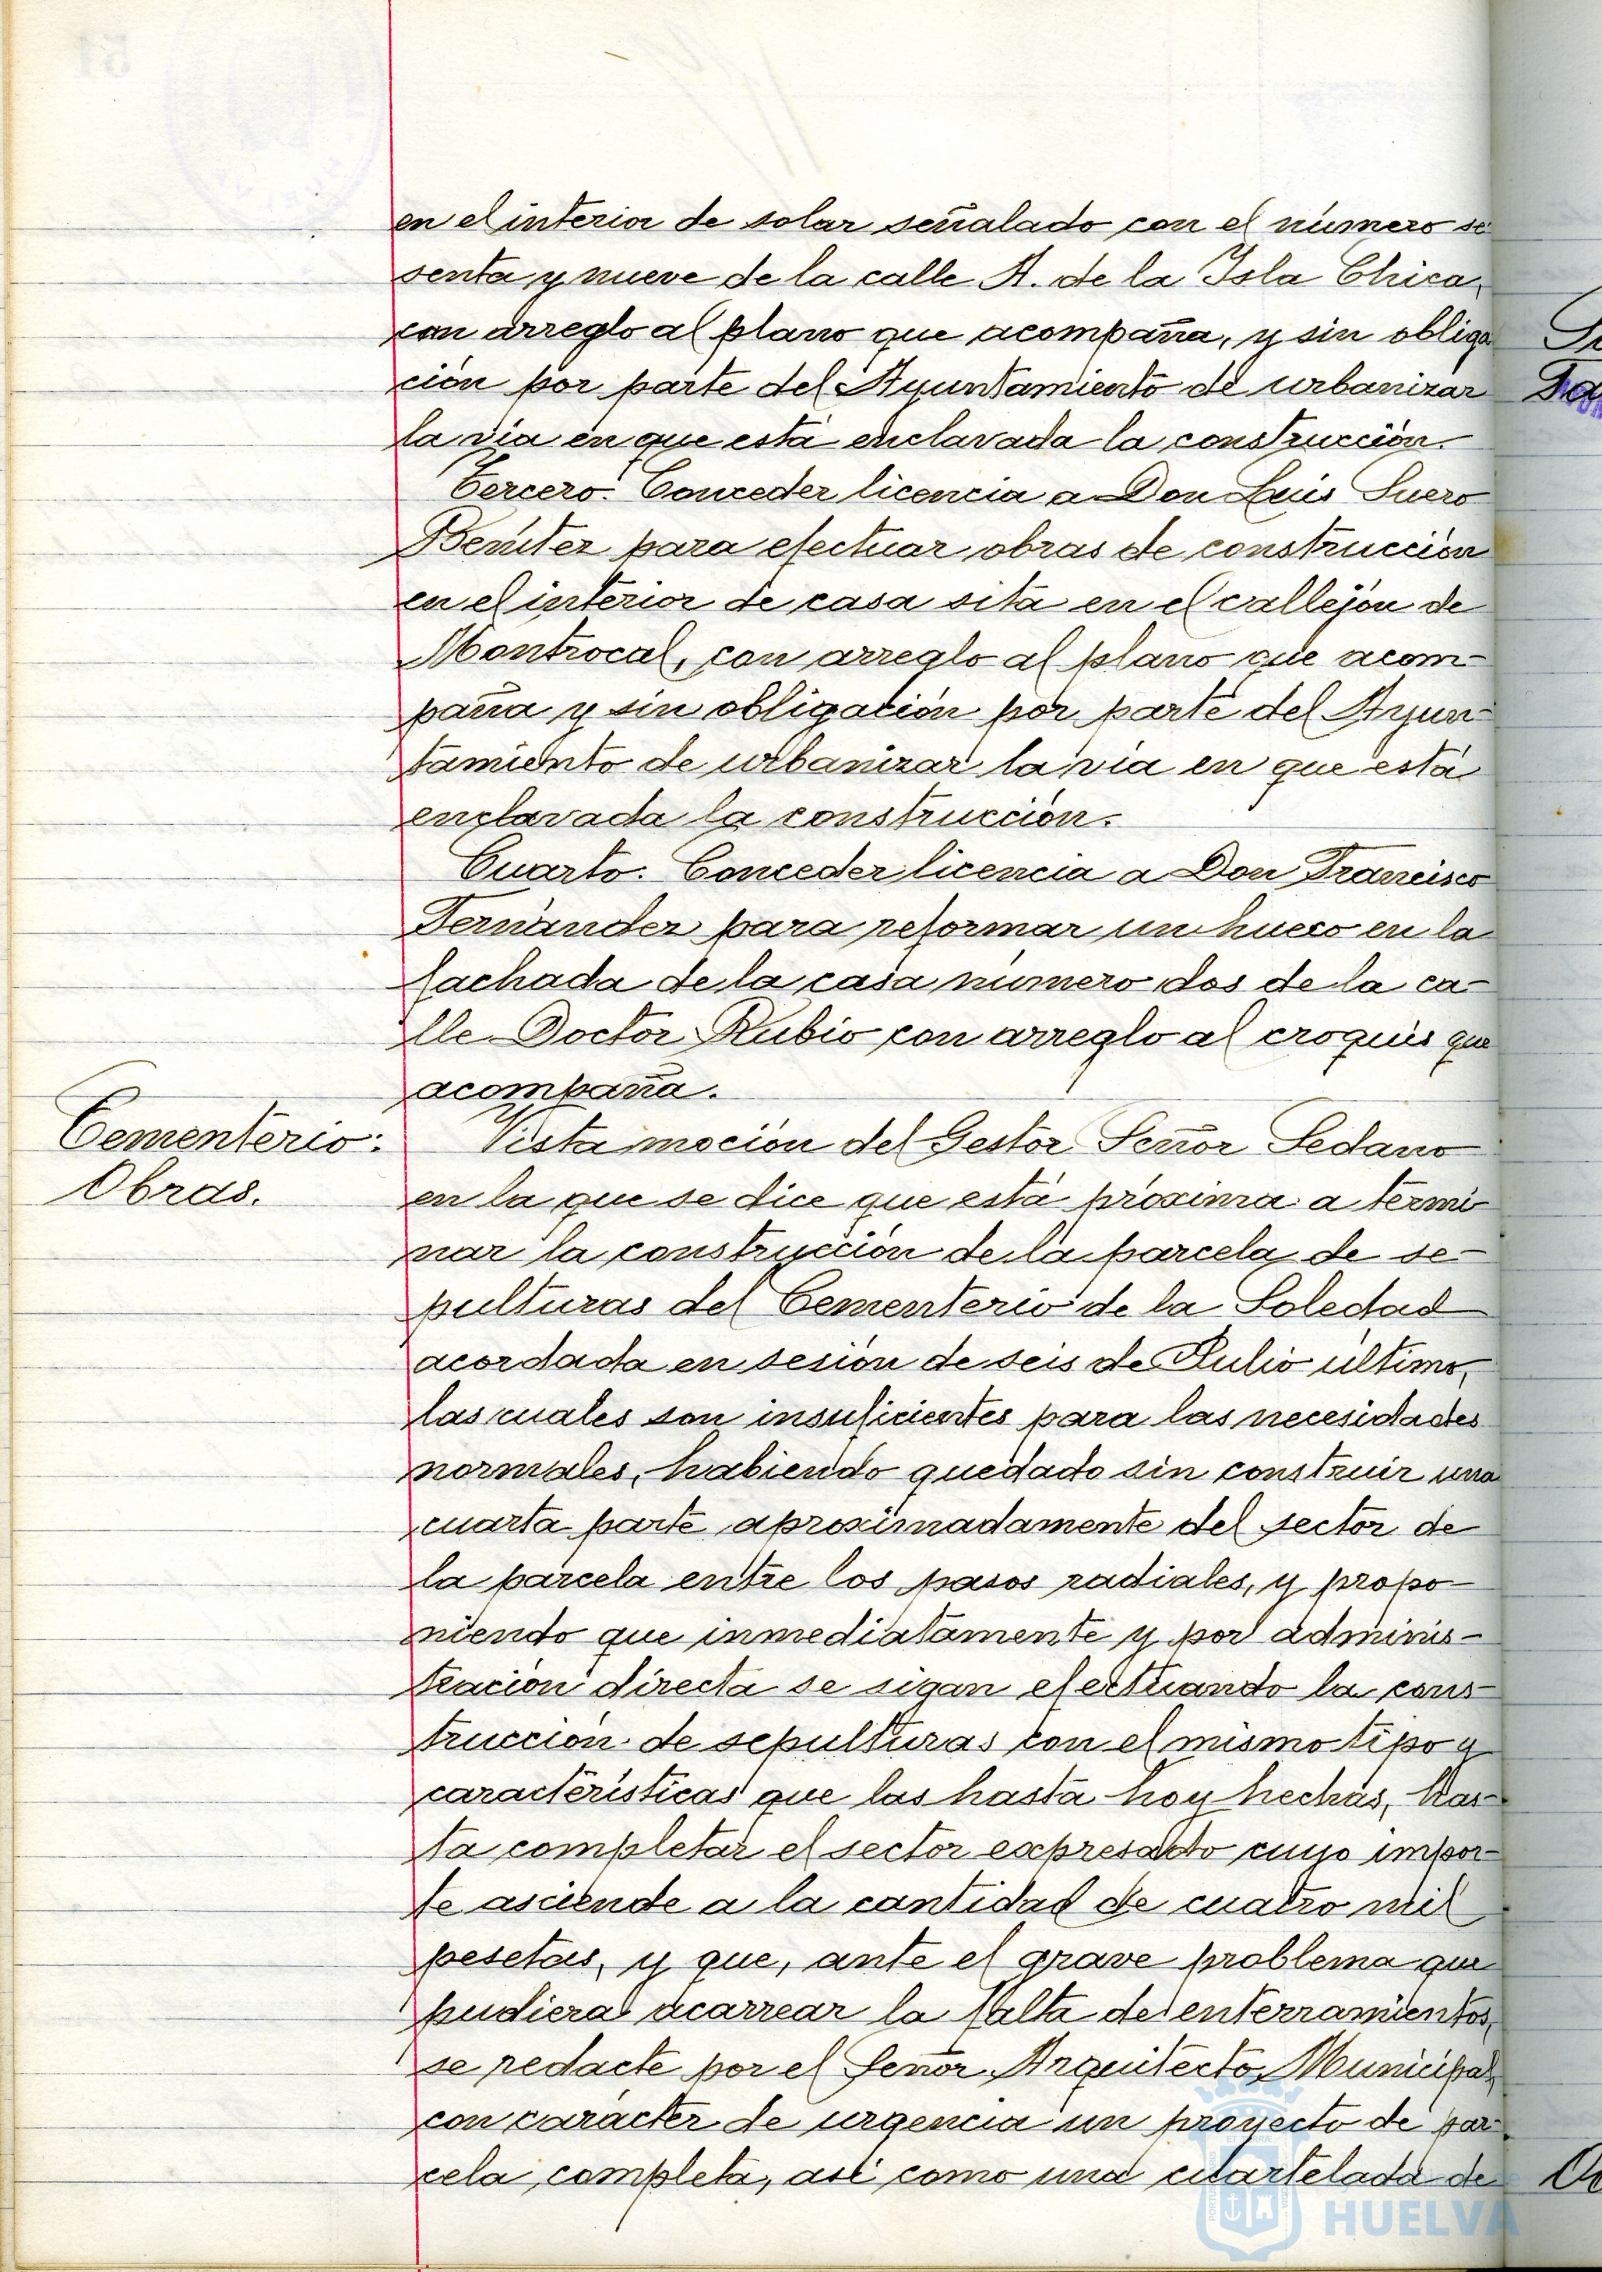 en el interior de solar señalado con el número se
senta y nueve de la calle A. de la Isla Chica,
con arreglo al plano que acompaña, y sin obliga
ción por parte del Ayuntamiento de urbanizar
la via en que está enclavada la construcción.
Tercero. Conceder licencia a Don Luis Suero
Benítez para efectuar obras de construcción
en el interior de casa sita en el callejón de
Montrocal, con arreglo al plano que acom-
paña y sin obligación por parte del Ayun-
tamiento de urbanizar la via en que está
enclavada la construcción.
Cuarto. Conceder licencia a Don Francisco
Fernández para reformar un hueco en la
fachada de la casa número dos de la ca-
lle Doctor Rubio con arreglo al croquis que
acompaña.
Cementerio:
Obras.
Vista moción del Gestor Señor Sedano
en la que se dice que está próxima a termi
nar la construcción de la parcela de se-
pulturas del Cementerio de la Soledad
acordada en sesión de seis de Julio último,
las cuales son insuficientes para las necesidades
normales, habiendo quedado sin construir una
cuarta parte aproximadamente del sector de
la parcela entre los pasos radiales, y propo-
niendo que inmediatamente y por adminis-
tración directa se sigan efectuando la cons-
trucción de sepulturas con el mismo tipo y
características que las hasta hoy hechas, has-
ta completar el sector expresado cuyo impor-
te asciende a la cantidad de cuatro mil
pesetas, y que, ante el grave problema que
pudiera acarrear la falta de enterramientos,
se redacte por el Señor Arquitecto Municipal,
con carácter de urgencia un proyecto de par-
cela completa, así como una cuartelada de
HUELVA